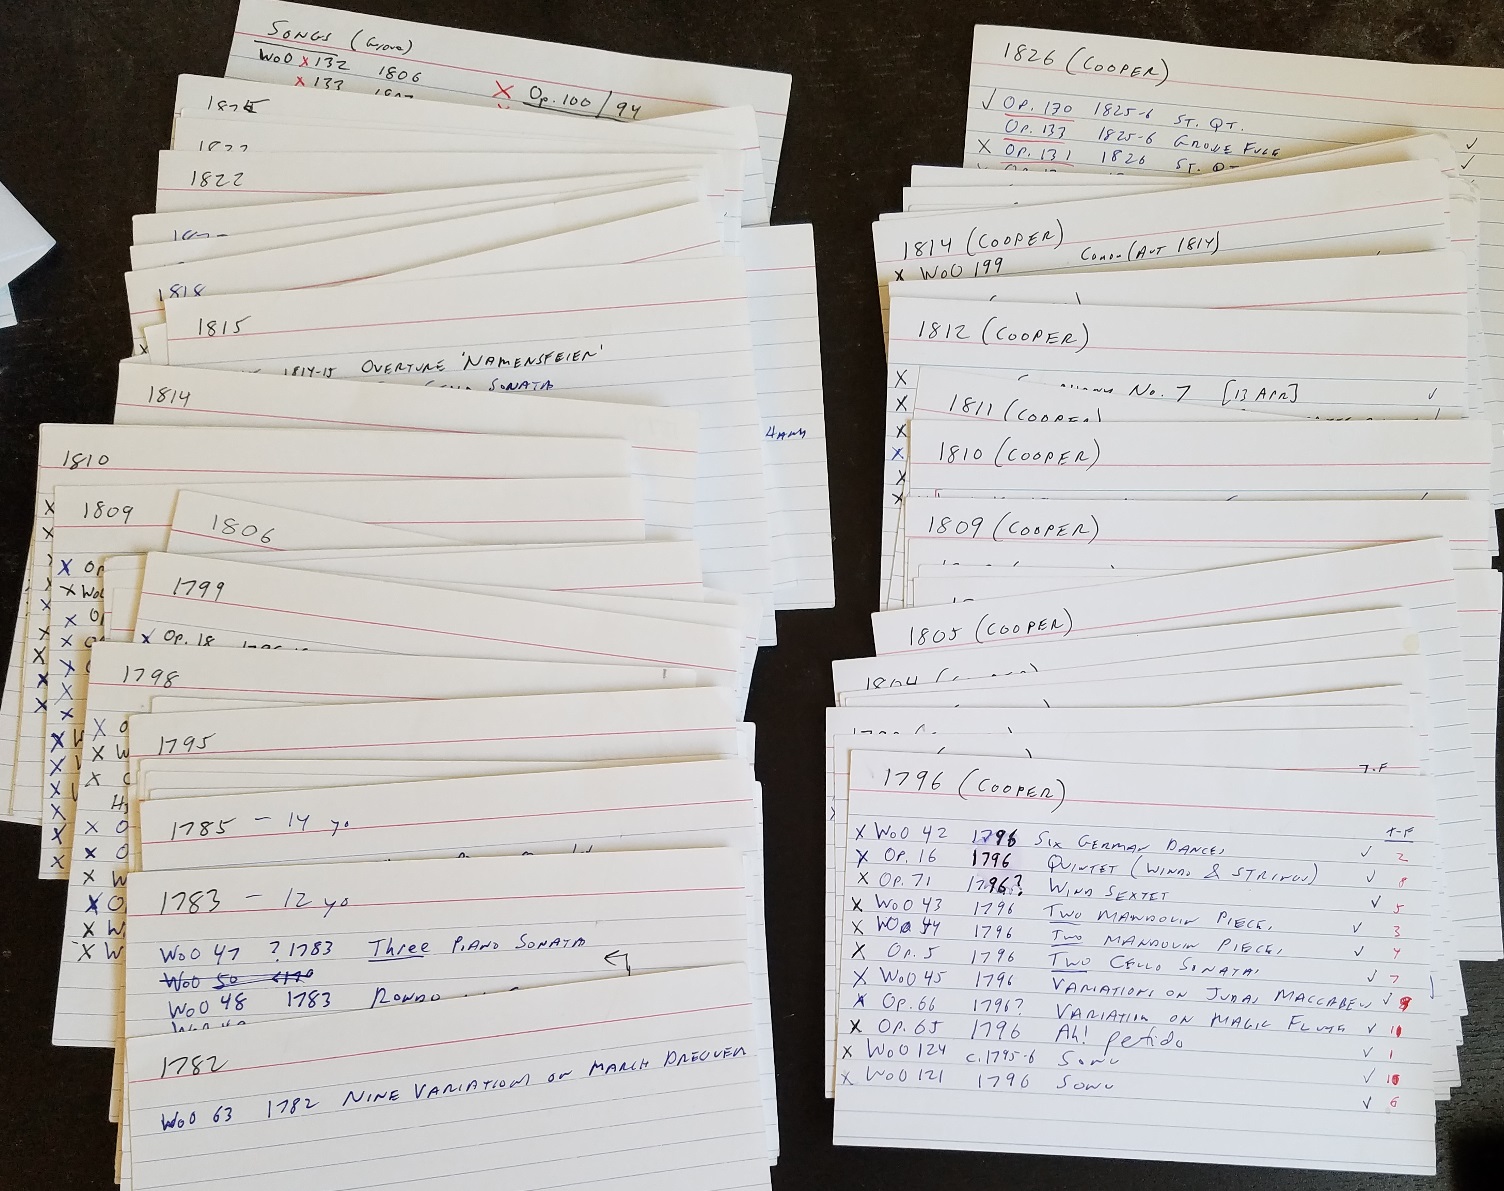 SONGS (Grove)
WoO X 132 1806
X 133
X Op. 100 / 94
1822
1818
1815
1814-15 OVERTURE 'NAMENSFEIER'
SONATA
1814
4 ANH
1810
1809
X Op
X WoO
1806
1799
X Op. 18
1798
1795
1785 - 14 yo
1783 - 12 yo
WoO 47 ? 1783 Three PIANO SONATA
WoO 50
WoO 48 1783 RONDO
1782
WoO 63 1782 NINE VARIATIONS ON MARCH DRESSLER
1826 (COOPER)
✓ Op. 130 1825-6 ST. QT.
Op. 133 1825-6 GROSSE FUGE ✓
X Op. 131 1826 ST. QT ✓
1814 (COOPER)
X WoO 199 CANON (AUT 1814)
1812 (COOPER)
No. 7 [13 APR] ✓
1811 (COOPER)
1810 (COOPER)
1809 (COOPER)
1805 (COOPER)
1804
1796 (COOPER)
T-F
X WoO 42 1796 SIX GERMAN DANCES ✓ 2
X Op. 16 1796 QUINTET (WINDS & STRINGS) ✓ 8
X Op. 71 1796? WIND SEXTET ✓ 5
X WoO 43 1796 TWO MANDOLIN PIECES ✓ 3
X WoO 44 1796 TWO MANDOLIN PIECES ✓ 4
X Op. 5 1796 TWO CELLO SONATAS ✓ 7
X WoO 45 1796 VARIATIONS ON JUDAS MACCABEUS ✓ 9
X Op. 66 1796? VARIATION ON MAGIC FLUTE ✓
X Op. 65 1796 Ah! perfido ✓ 1
X WoO 124 c. 1795-6 SONG ✓ 10
X WoO 121 1796 SONG ✓ 6